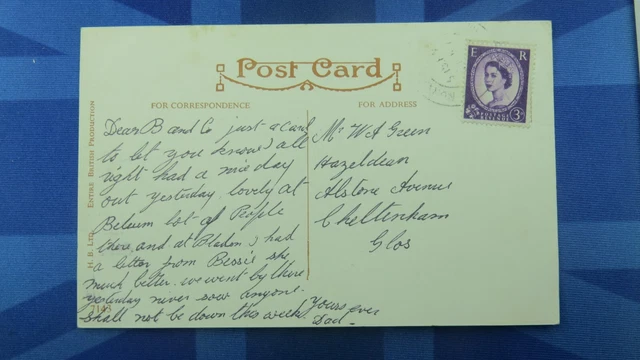 Post Card
FOR CORRESPONDENCE
FOR ADDRESS
E R
POSTAGE
3D
H.B. LTD. ENTIRE BRITISH PRODUCTION
7143
Dear B and Co just a card
to let you know I all
right had a nice day
out yesterday lovely at
lot of People
there, and at Bladon I had
a letter from Bessie she
much better. we went by there
yesterday never saw anyone.
shall not be down this week
Yours ever
Dad -
Mr W A Green
Hazeldean
Alstone Avenue
Cheltenham
Glos